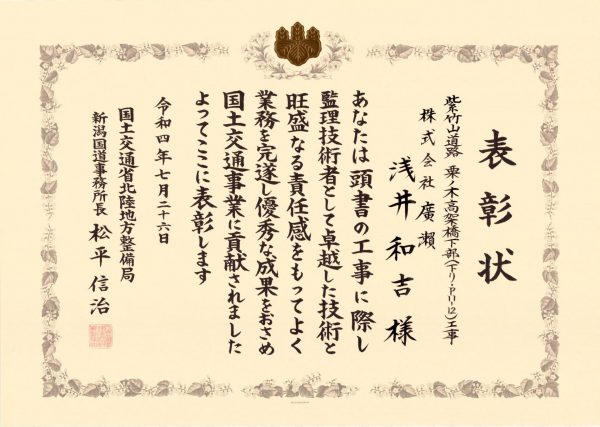 表彰状
紫竹山道路 栗ノ木高架橋下部(下り・P11-12)工事
株式会社 廣瀨
浅井和吉 様
あなたは頭書の工事に際し
監理技術者として卓越した技術と
旺盛なる責任感をもってよく
業務を完遂し優秀な成果をおさめ
国土交通事業に貢献されました
よってここに表彰します
令和四年七月二十六日
国土交通省北陸地方整備局
新潟国道事務所長 松平信治